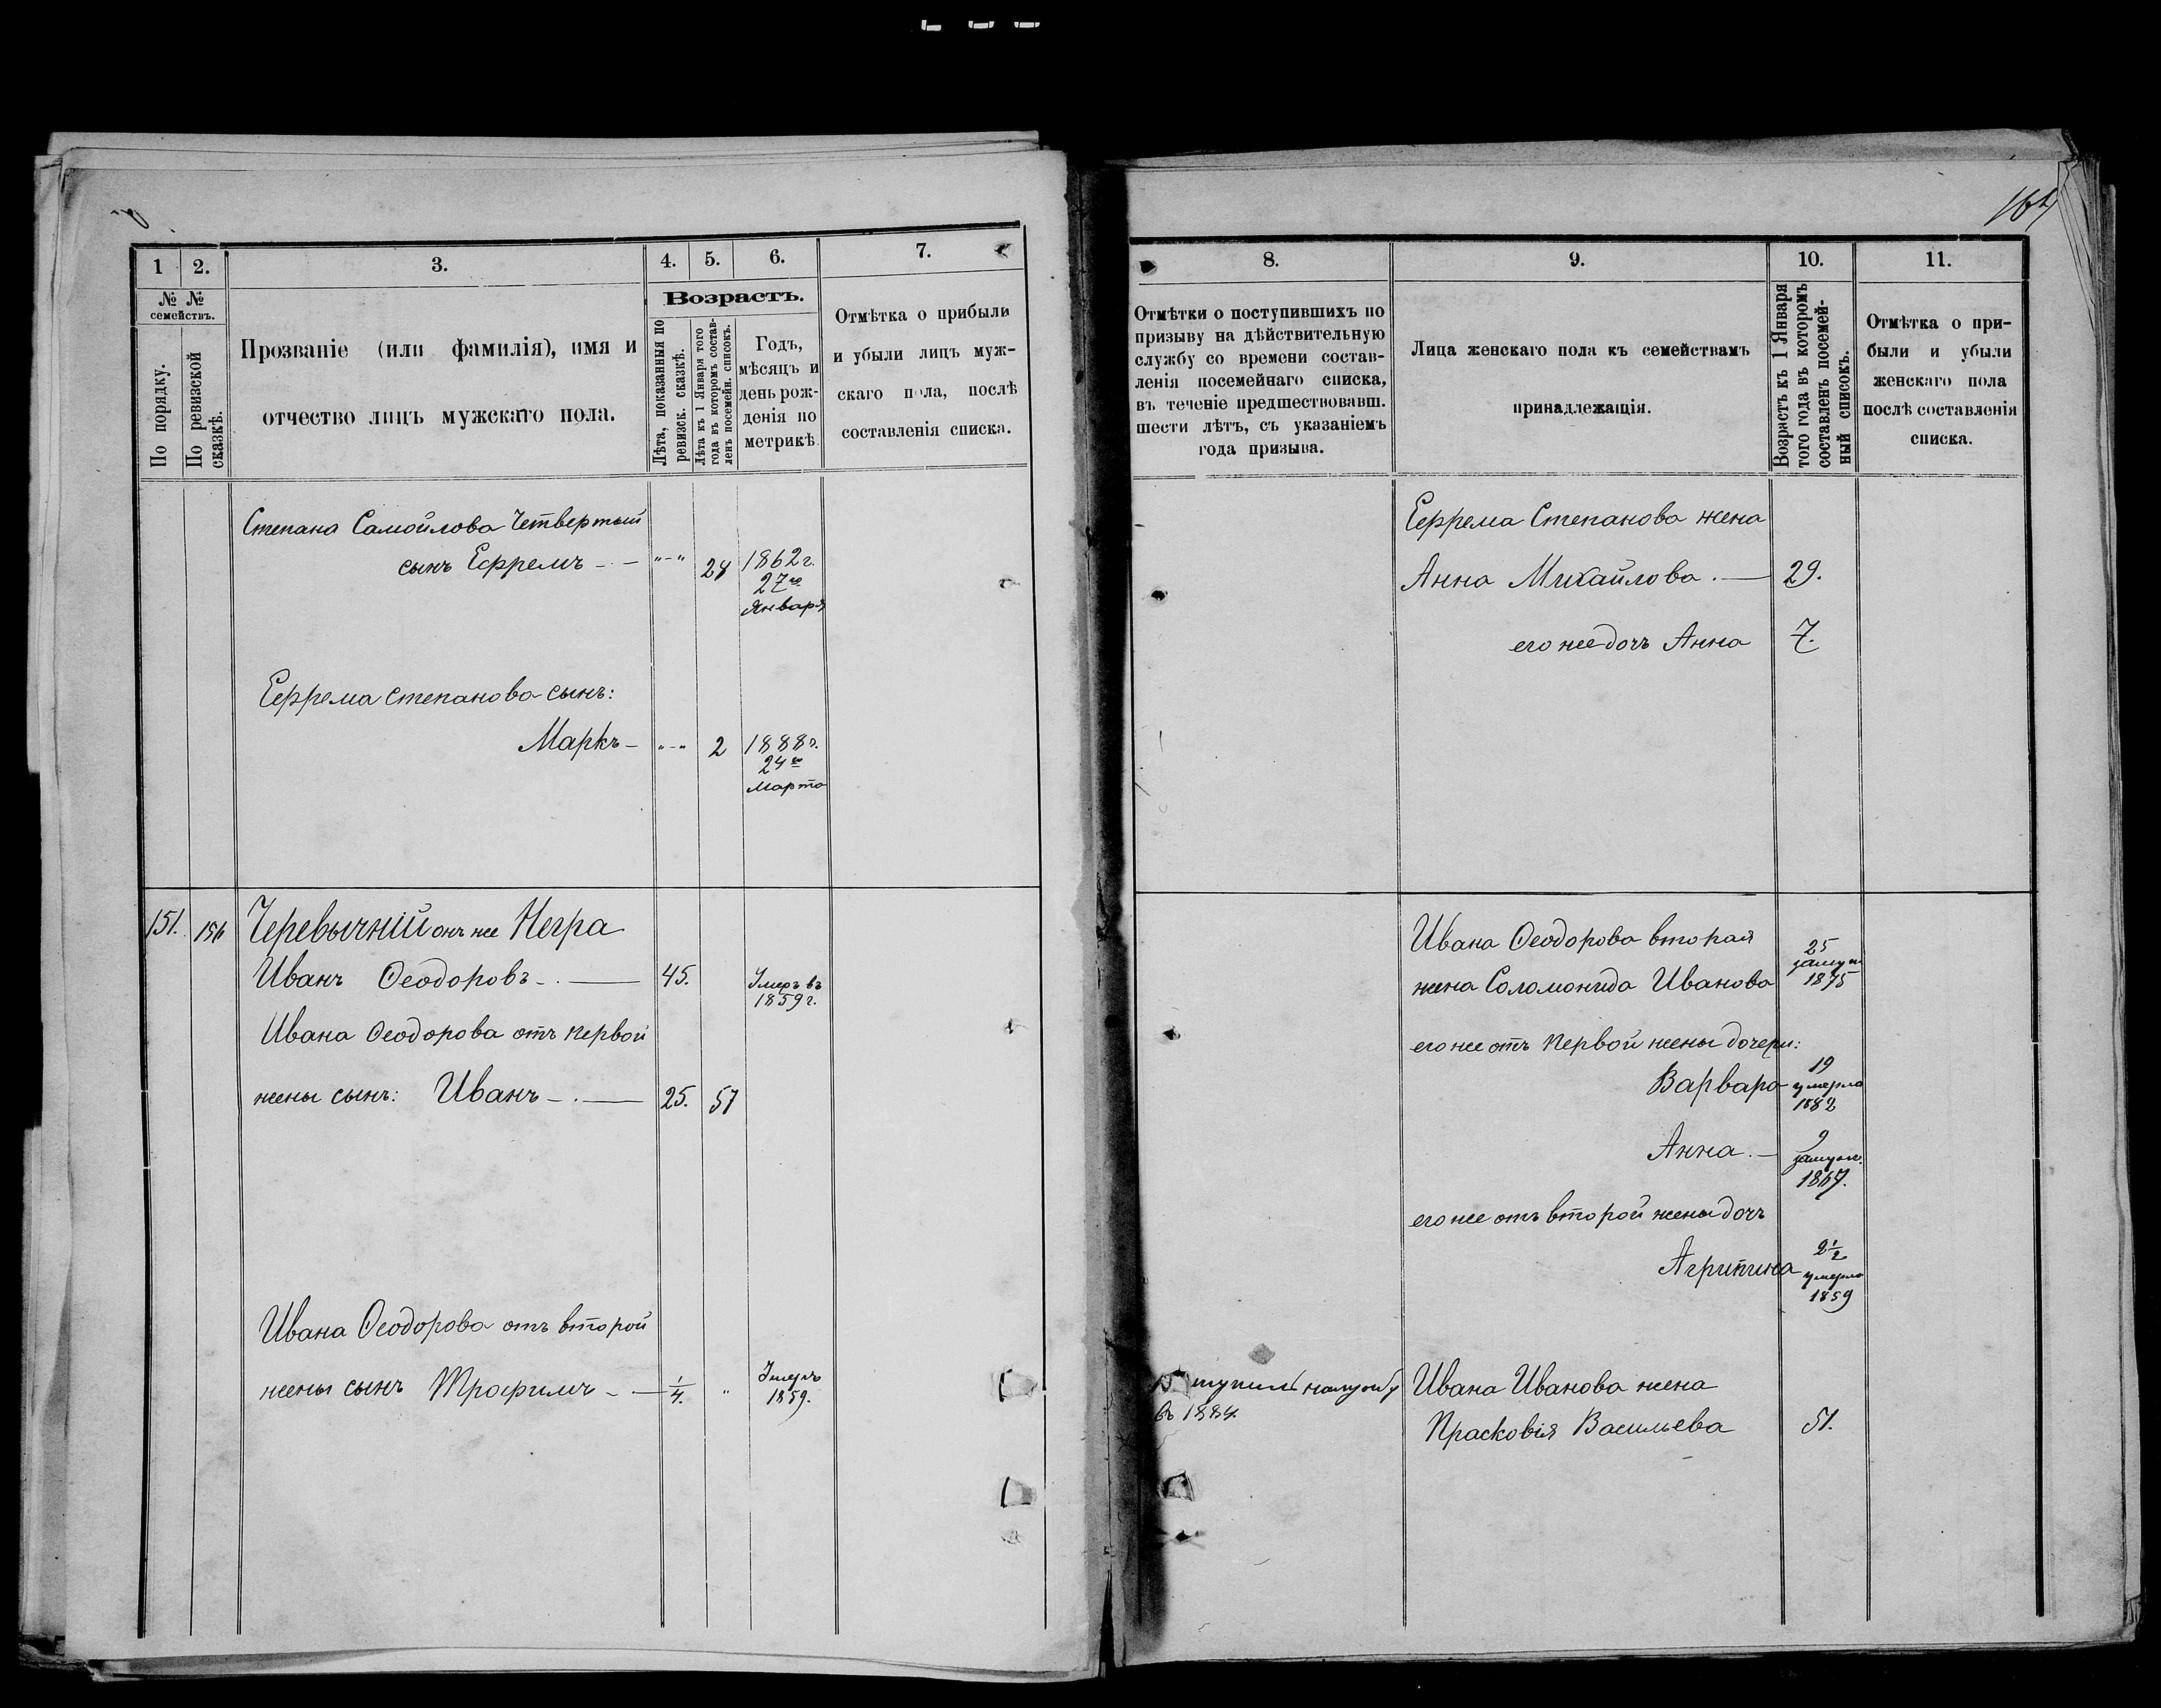 1
2.
3.
4.
5.
6.
7.
№ №
семействъ.
По порядку.
По ревизской
сказкѣ.
Прозваніе (или фамилія), имя и
отчество лицъ мужскаго пола.
Возрастъ.
Лѣта, показанныя по
ревизск. сказкѣ.
Лѣта къ 1 Января того
года въ которомъ состав-
ленъ посемейн. списокъ.
Годъ,
мѣсяцъ и
день рож-
денія по
метрикѣ.
Отмѣтка о прибыли
и убыли лицъ муж-
скаго пола, послѣ
составленія списка.
Степана Самойлова Четвертый
сынъ Ефремъ - - "-" 1862 г.
27го
Января
Ефрема Степанова сынъ:
Маркъ - "-" 2 1888 г.
24го
Марта
151. 156 Черевычній онъ же Негра
Иванъ Ѳеодоровъ - . — 45. Умеръ въ
1859 г.
Ивана Ѳеодорова отъ первой
жены сынъ: Иванъ - . — 25. 57
Ивана Ѳеодорова отъ второй
жены сынъ Трофимъ - — 1/4. " Умеръ
1859.
8.
9.
10.
11.
Отмѣтки о поступившихъ по
призыву на дѣйствительную
службу со времени состав-
ленія посемейнаго списка,
въ теченіе предшествовавш.
шести лѣтъ, съ указаніемъ
года призыва.
Лица женскаго пола къ семействамъ
принадлежащія.
Возрастъ къ 1 Января
того года въ которомъ
составленъ посемей-
ный списокъ.
Отмѣтка о при-
были и убыли
женскаго пола
послѣ составленія
списка.
Ефрема Степанова жена
Анна Михайлова . — 29.
его же дочь Анна 7.
Ивана Ѳеодорова вторая
жена Соломонида Иванова
25
замуж
1875
его же отъ первой жены дочери:
Варвара
19
умерла
1882
Анна . —
9
замуж.
1867.
его же отъ второй жены дочь
Агрипина
2 1/2
умерла
1859
въ 1884.
Ивана Иванова жена
Прасковія Васильева 51.